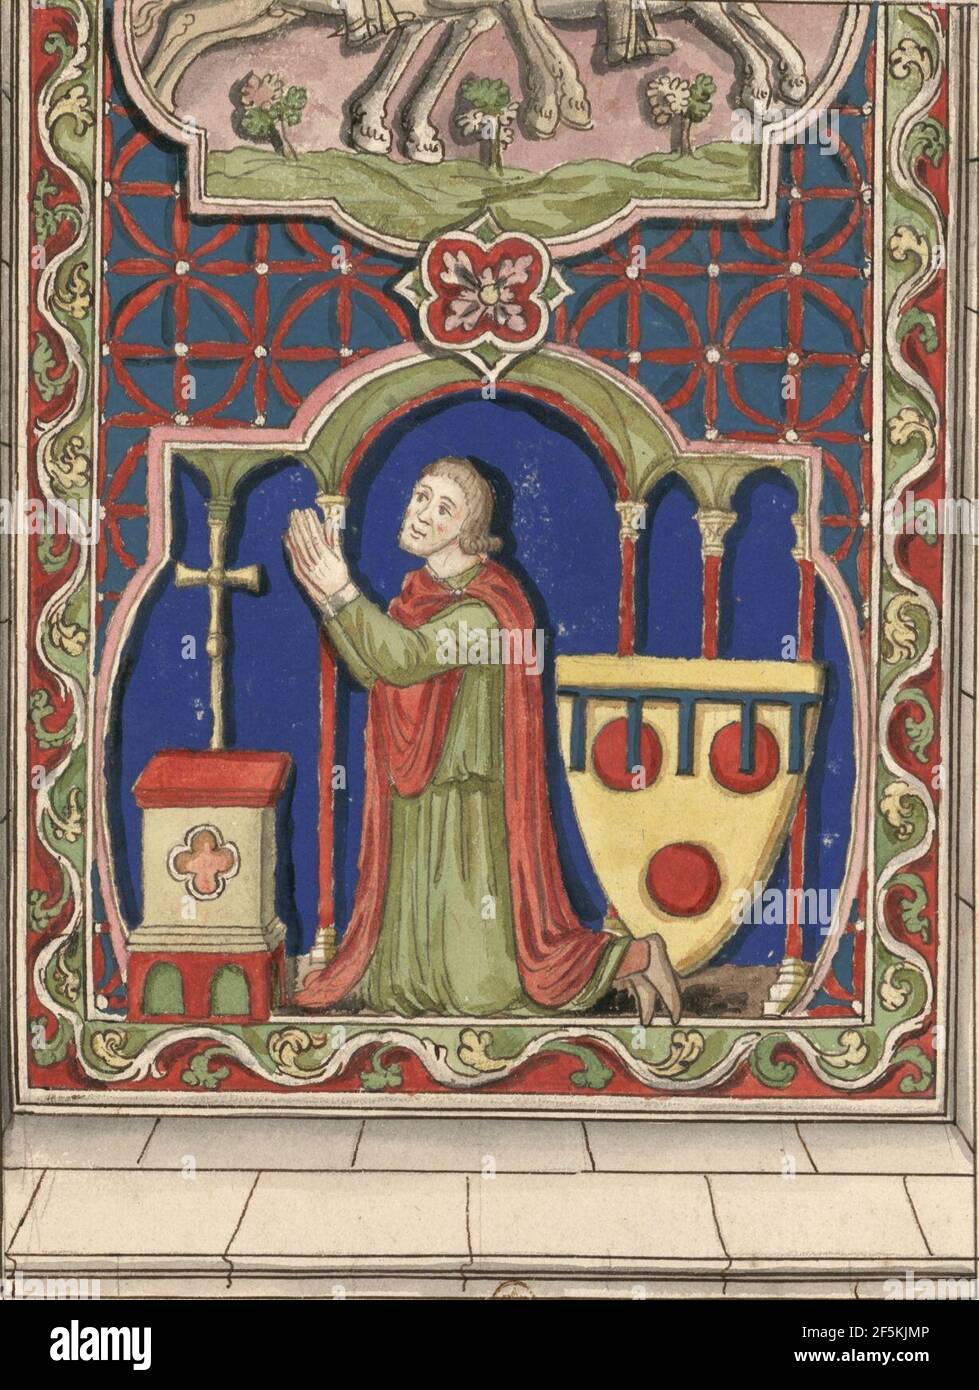 alamy
Image ID: 2F5KJMP
www.alamy.com